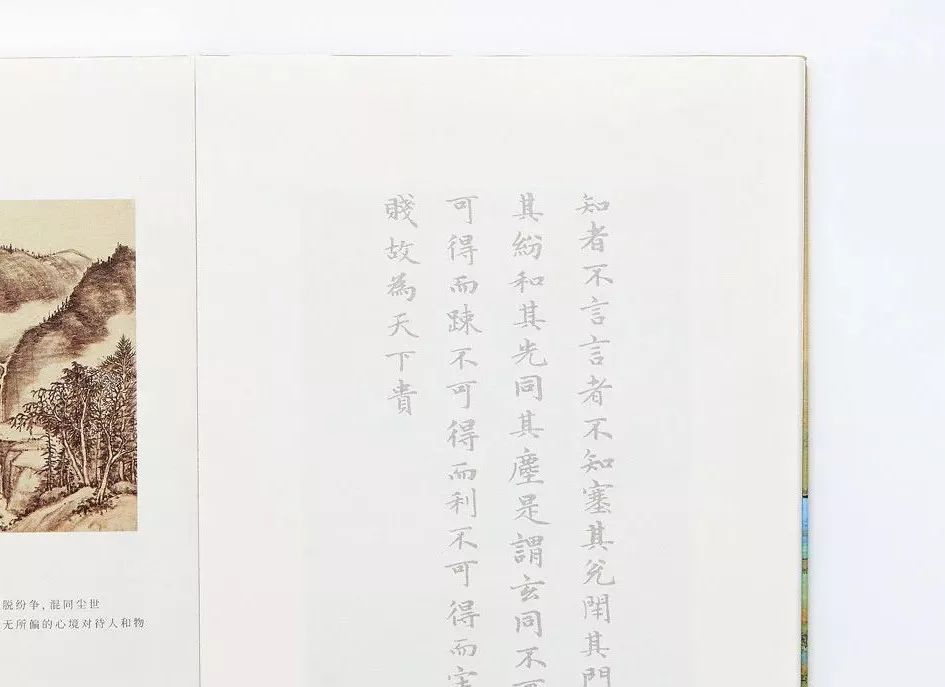 脱纷争，混同尘世
无所偏的心境对待人和物
知者不言言者不知塞其兌閇其門
其紛和其光同其塵是謂玄同不可
可得而踈不可得而利不可得而害
賤故為天下貴